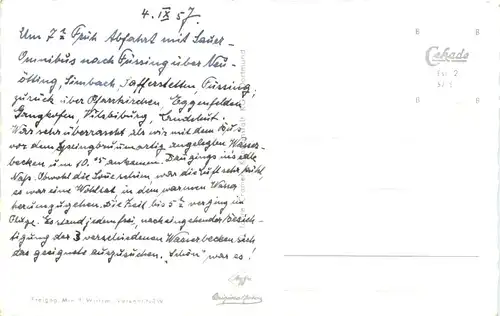 4. IX 57.
Um 7 h Früh Abfahrt mit Sauer-
Omnibus nach Füssing über Neu-
ötting, Simbach, Tafferstetten, Füssing;
zurück über Pfarrkirchen, Eggenfelden,
Gangkofen, Vilsbiburg, Landshut.
War sehr überrascht als wir mit dem Bus
vor dem Springbrunnartig angelegten Wasser-
becken um 10.45 ankamen. Da gings ins edle
Naß. Obwohl die Sone schien, war die Luft sehr kühl,
es war eine Wohltat in dem warmen Wasser
herumzugehen. Die Zeit bis 5 h verging im
Fluge. Es stand jedem frei, nach eingehender Besich-
tigung der 3 verschiedenen Wasserbecken, sich
das geeignete auszusuchen. "Schön" war es!
Cekade
B B
B B
Freigeg.